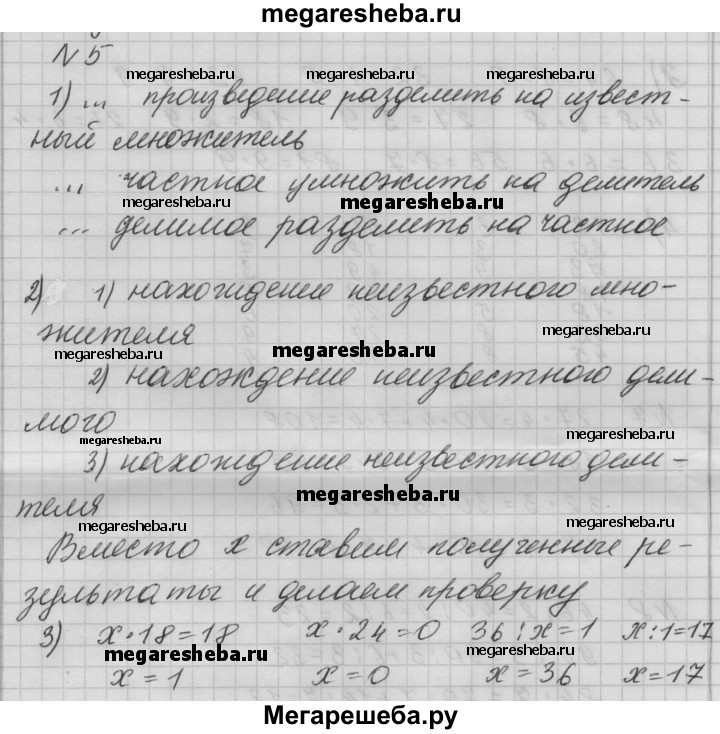 megaresheba.ru
№5
megaresheba.ru megaresheba.ru
1) ... произведение разделить на извест-
ный множитель
... частное умножить на делитель
megaresheba.ru megaresheba.ru
... делимое разделить на частное
2) 1) нахождение неизвестного мно-
жителя
megaresheba.ru
megaresheba.ru megaresheba.ru
2) нахождение неизвестного дели-
мого
megaresheba.ru
megaresheba.ru
3) нахождение неизвестного дели-
теля
megaresheba.ru
megaresheba.ru megaresheba.ru
Вместо x ставим полученные ре-
зультаты и делаем проверку
3) x·18=18 x·24=0 36:x=1 x:1=17
megaresheba.ru megaresheba.ru
x=1 x=0 x=36 x=17
Мегарешеба.ру